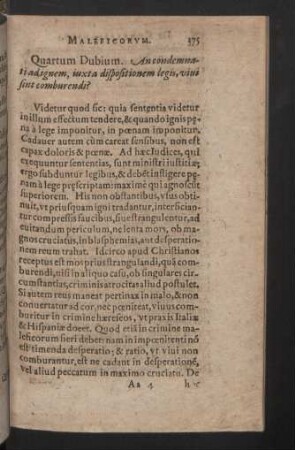 MALEFICORVM. 375
Quartum Dubium. An condemna-
ti ad ignem, iuxta dispositionem legis, viui
sint comburendi?
Videtur quod sic: quia sententia videtur
in illum effectum tendere, & quando ignis pœ-
na à lege imponitur, in pœnam imponitur.
Cadauer autem cùm careat sensibus, non est
capax doloris & pœnæ. Ad hæc Iudices, qui
exequuntur sententias, sunt ministri iustitiæ;
ergo subduntur legibus, & debẽt infligere pœ-
nam à lege prescriptam: maximè qui agnoscũt
superiorem. His non obstantibus, vsus obti-
nuit, vt priusquam igni tradantur, interfician-
tur compressis faucibus, siue strangulentur, ad
euitandum periculum, ne lenta mors, ob ma-
gnos cruciatus, in blasphemias, aut desperatio-
nem reum trahat. Idcirco apud Christianos
receptus est mos prius strangulandi, quã com-
burendi, nisi in aliquo casu, ob singulares cir-
cumstantias, criminis atrocitas aliud postulet.
Si autem reus maneat pertinax in malo, & non
conuertatur ad cor, nec pœniteat, viuus com-
buritur in crimine hæreseos, vt praxis Italiæ
& Hispaniæ docet. Quod etiã in crimine ma-
leficorum fieri debet: nam in impœnitenti nõ
est timenda desperatio; & ratio, vt viui non
comburantur, est ne cadant in desperationẽ,
vel aliud peccatum in maximo cruciatu. De
Aa 4